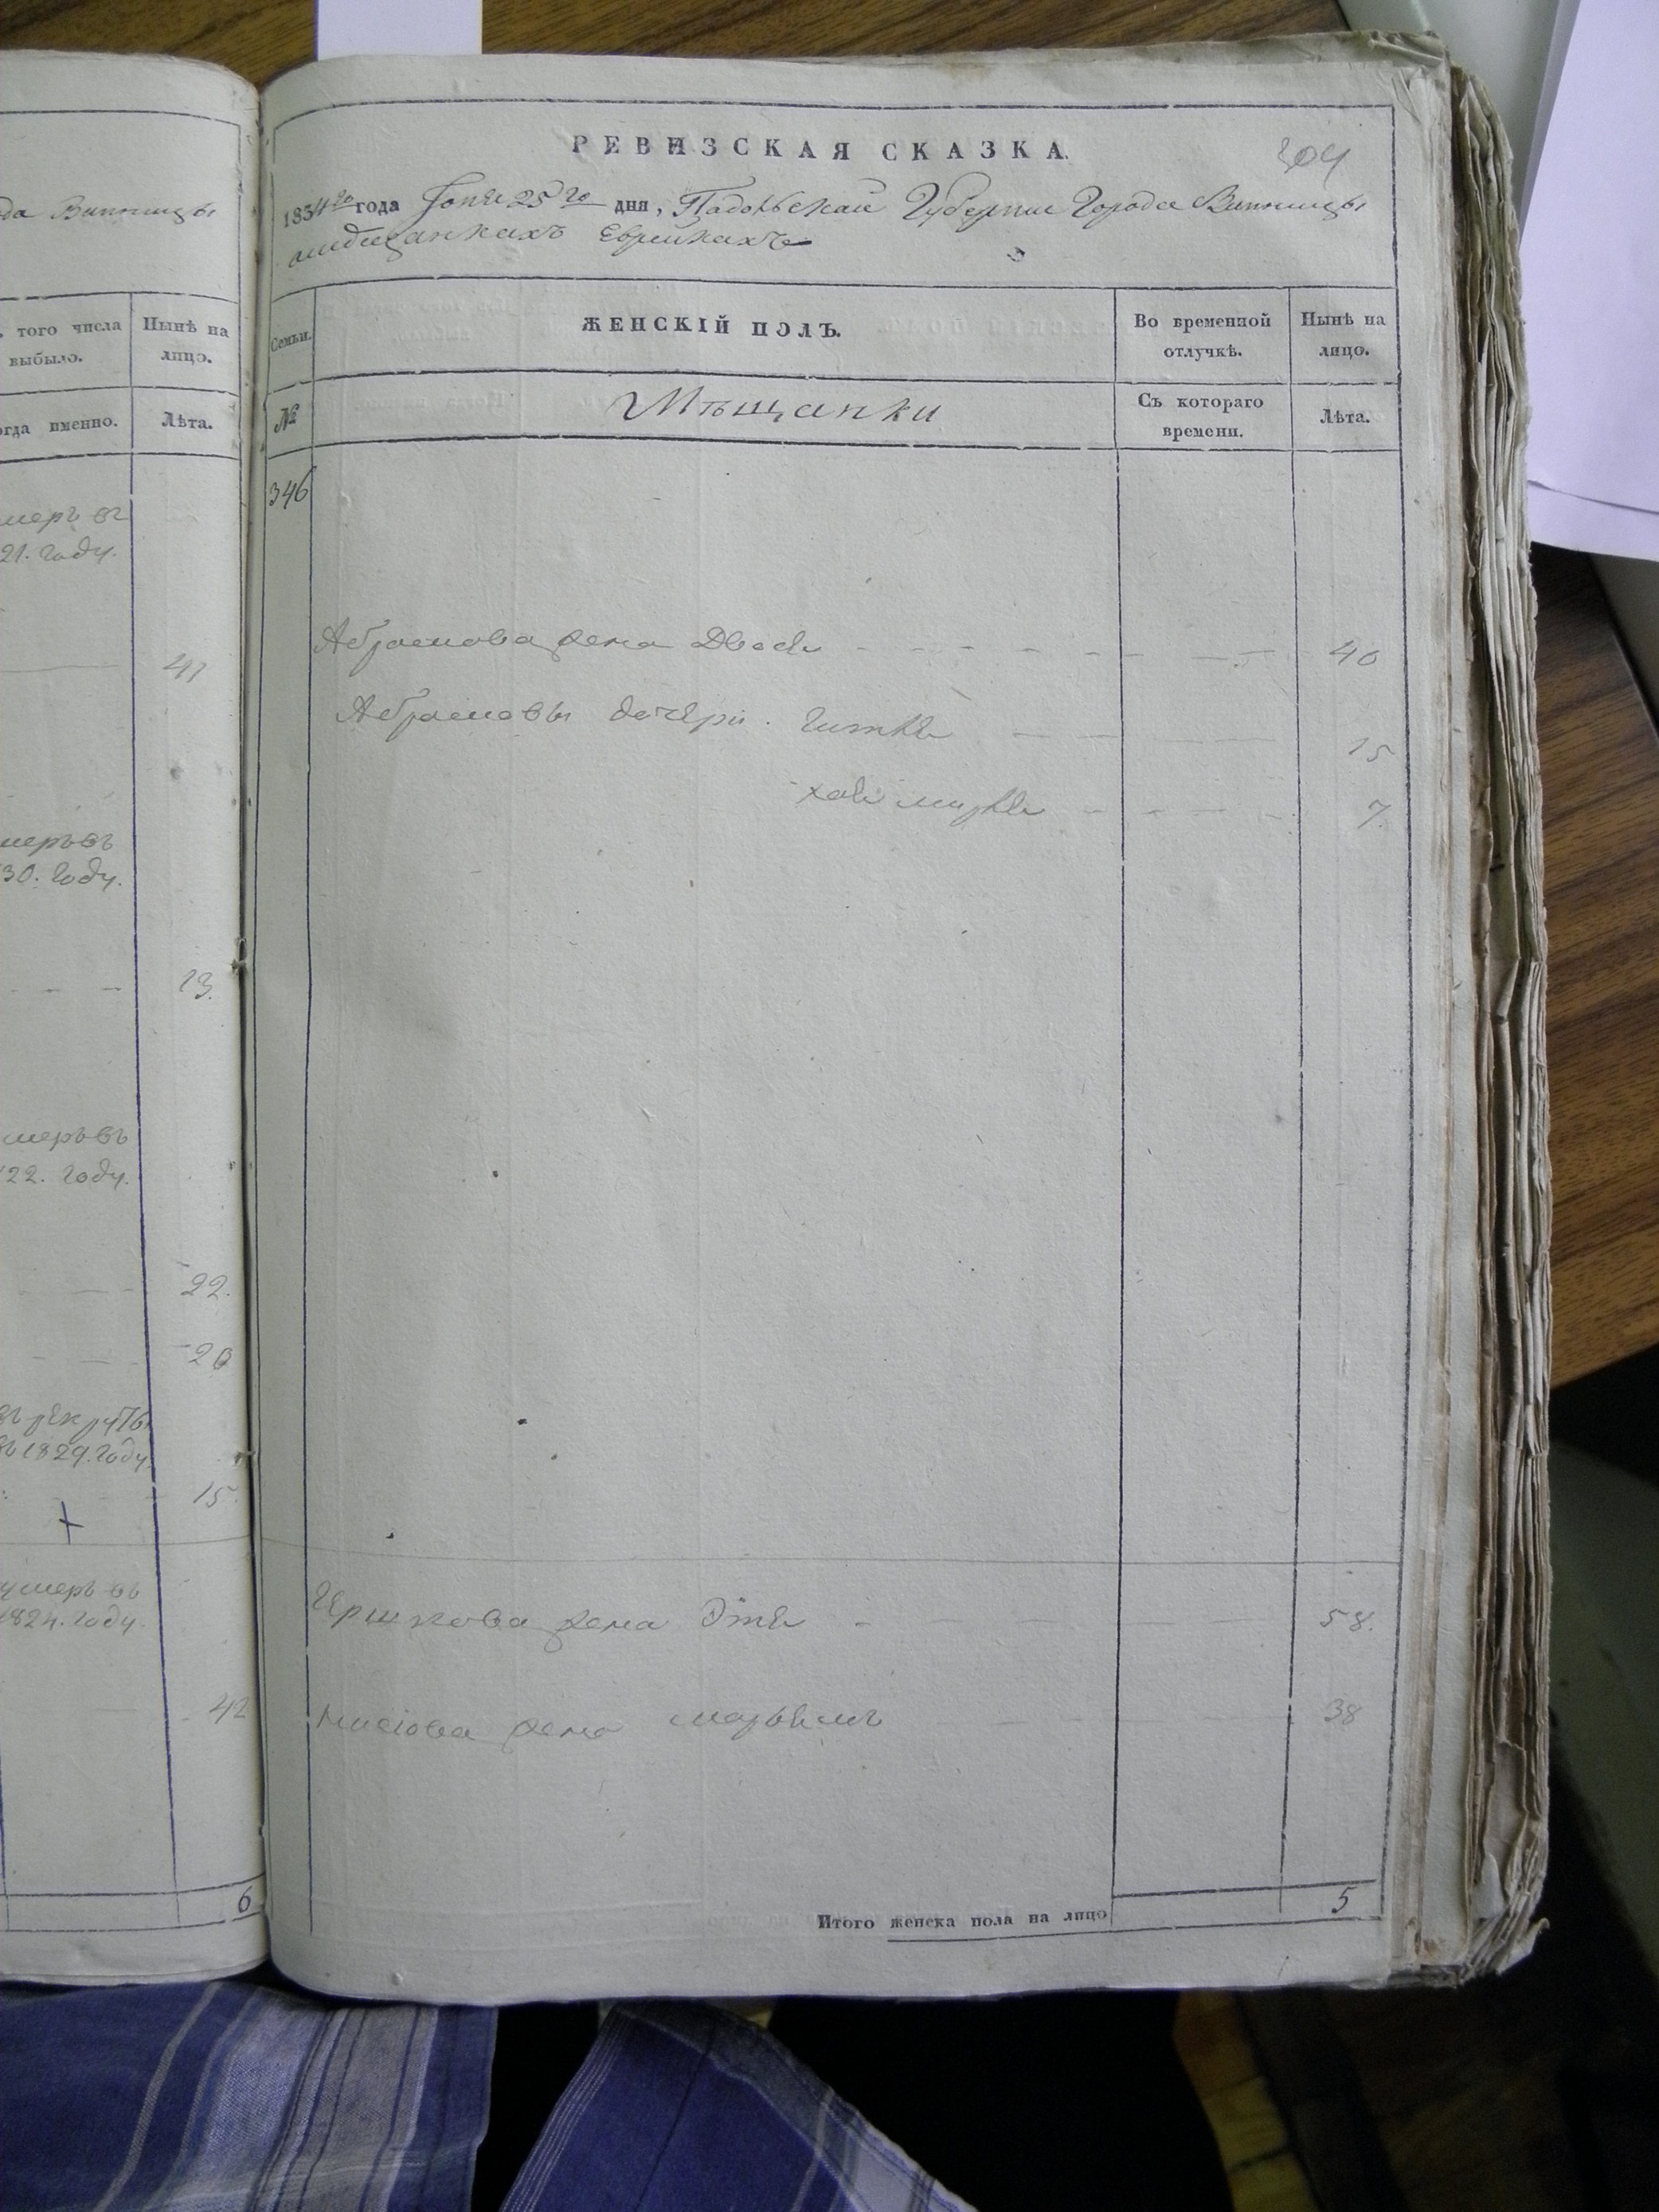 да Винницы
того числа
выбыло.
Нынѣ на
лицо.
огда именно.
Лѣта.
мерь въ
21. году.
41
мерь въ
30. году.
13.
мерь въ
22. году.
22.
20
въ рекруты
въ 1829. году
15.
умерь въ
1824. году.
42
6
РЕВИЗСКАЯ СКАЗКА.
304
1834го года Іюня 25го дня, Подольской Губерніи Города Винницы
о мѣщанкахъ Еврейкахъ
Семьи.
ЖЕНСКІЙ ПОЛЪ.
Во временной
отлучкѣ.
Нынѣ на
лицо.
№
Мѣщанки
Съ котораго
времени.
Лѣта.
346
Абрамова жена Двося 40
Абрамовы дочери. Гитля 15
Хая 7.
Гершкова жена Этя 58.
жена Марьямъ 38
Итого женска пола на лицо 5